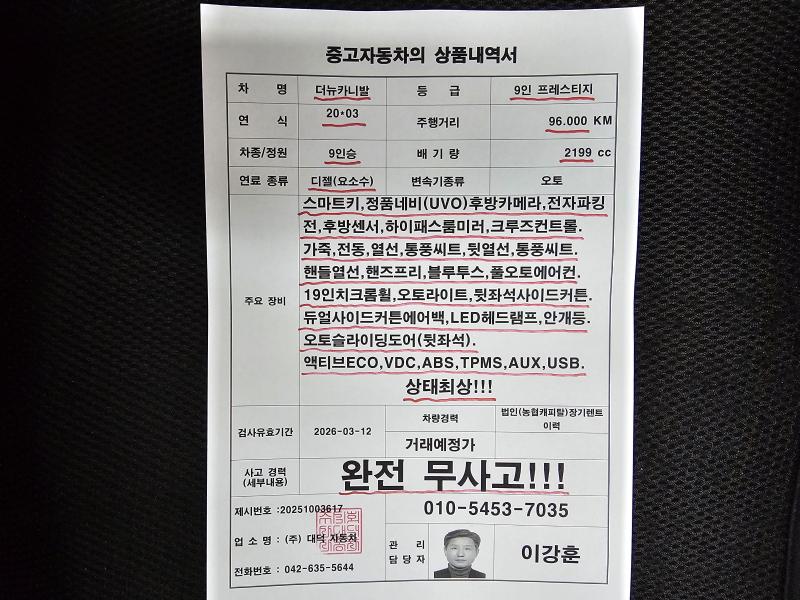 중고자동차의 상품내역서
차 명 더뉴카니발 등 급 9인 프레스티지
연 식 20*03 주행거리 96.000 KM
차종/정원 9인승 배 기 량 2199 cc
연료 종류 디젤(요소수) 변속기종류 오토
주요 장비
스마트키,정품네비(UVO)후방카메라,전자파킹
전,후방센서,하이패스룸미러,크루즈컨트롤.
가죽,전동,열선,통풍씨트,뒷열선,통풍씨트.
핸들열선,핸즈프리,블루투스,풀오토에어컨.
19인치크롬휠,오토라이트,뒷좌석사이드커튼.
듀얼사이드커튼에어백,LED헤드램프,안개등.
오토슬라이딩도어(뒷좌석).
액티브ECO,VDC,ABS,TPMS,AUX,USB.
상태최상!!!
검사유효기간 2026-03-12 차량경력 법인(농협캐피탈)장기렌트
이력
거래예정가
사고 경력
(세부내용)
완전 무사고!!!
제시번호 :20251003617 010-5453-7035
업 소 명 : (주) 대덕 자동차
전화번호 : 042-635-5644
관 리
담 당 자
이강훈